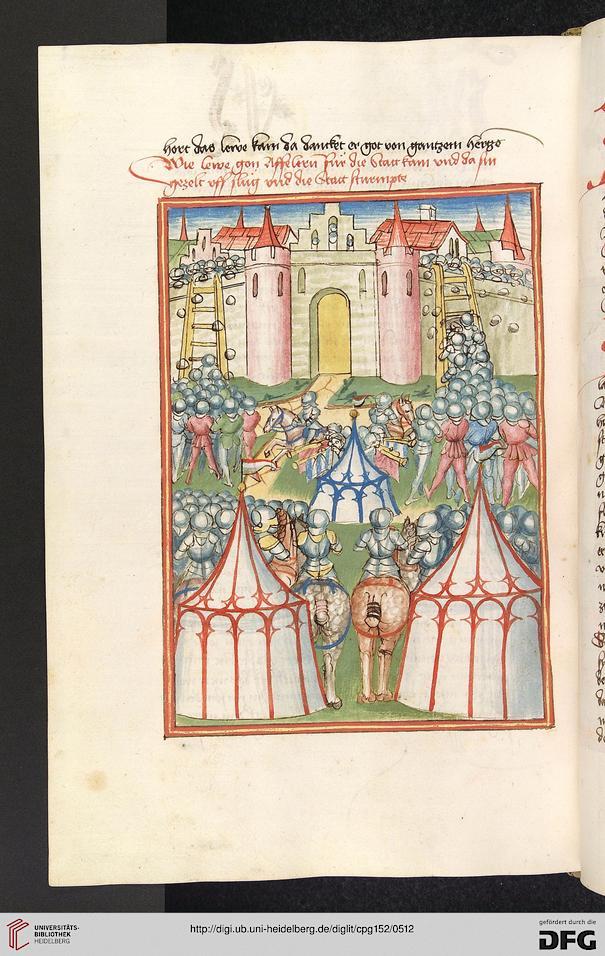 hort das lewe kam da dancket er got von gantzem hertze
Wie lewe gon Affelren für die Statt kam vnd da sin
gezelt vff slug vnd die Statt sturmpte
UNIVERSITÄTS-
BIBLIOTHEK
HEIDELBERG
http://digi.ub.uni-heidelberg.de/diglit/cpg152/0512
gefördert durch die
DFG